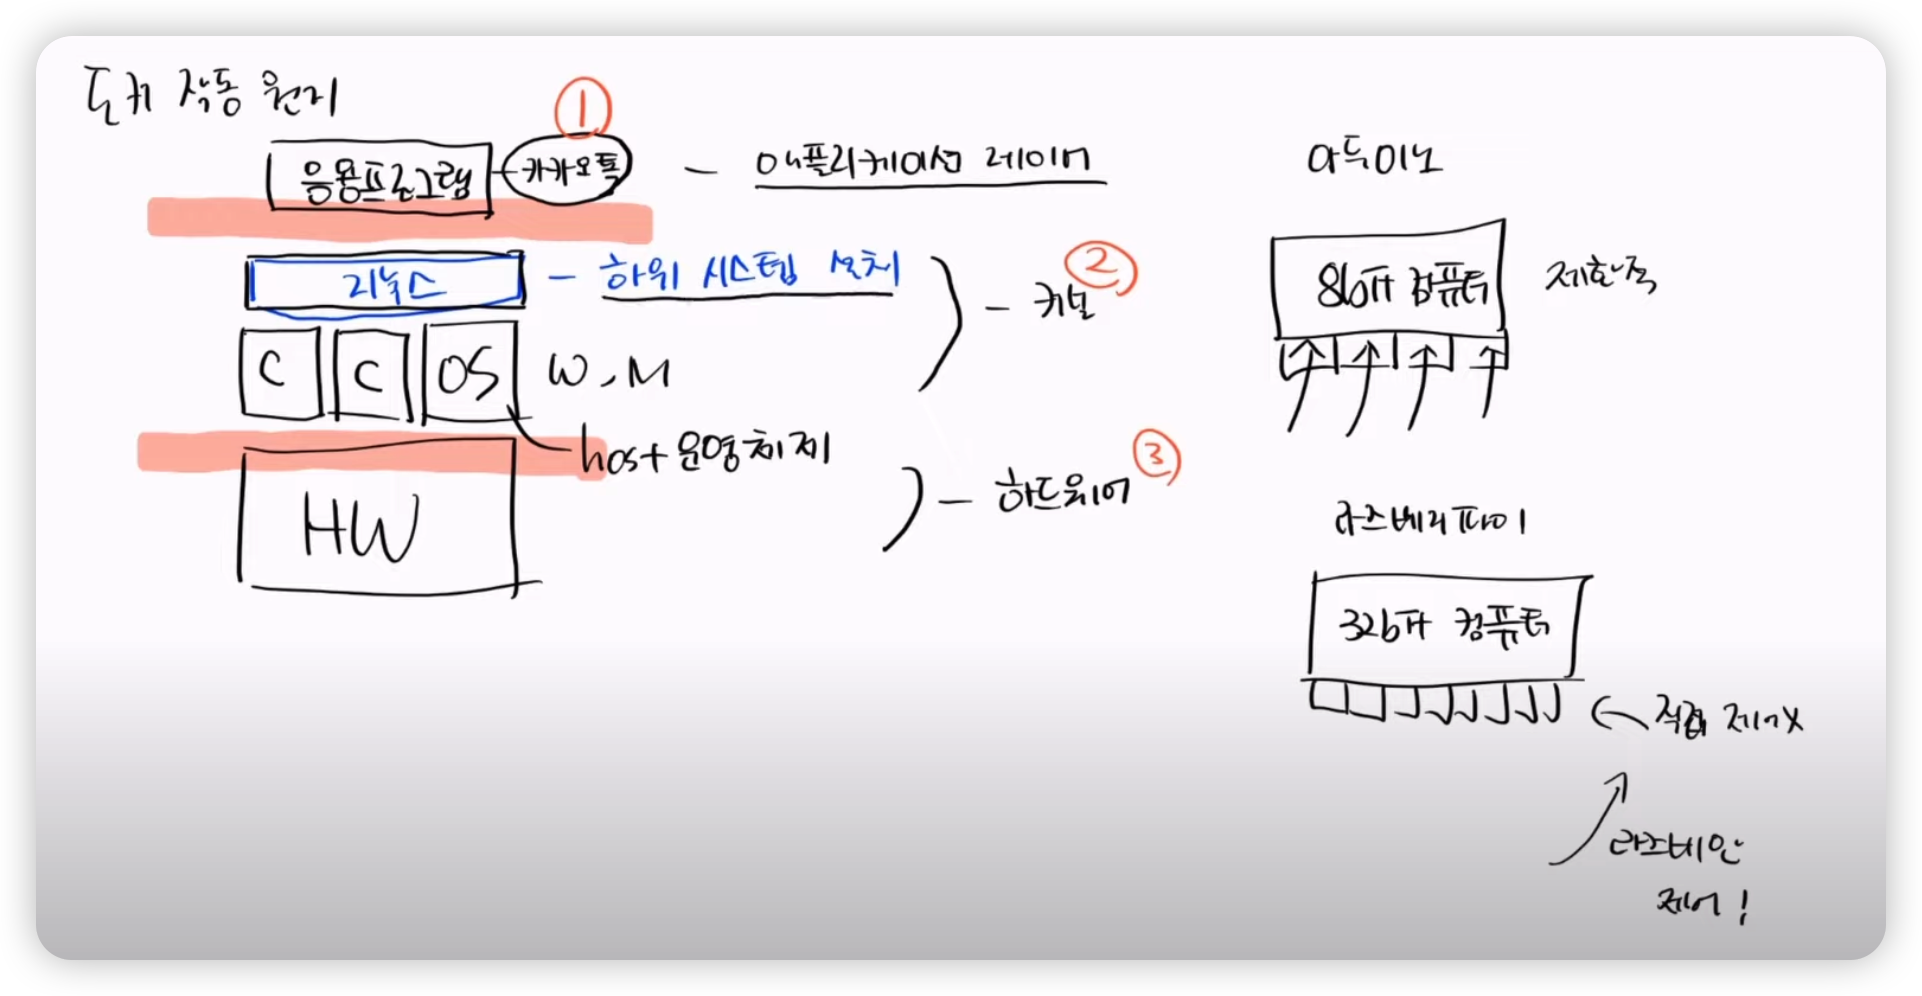 도커 작동 원리
①
응용프로그램 카카오톡 - 애플리케이션 레이어
리눅스 - 하위 시스템 설치
② - 커널
C C OS W, M
host 운영체제
③ - 하드웨어
HW
아두이노
8bit 컴퓨터 제한적
라즈베리파이
32bit 컴퓨터
직접 제어X
라즈비안
제어!